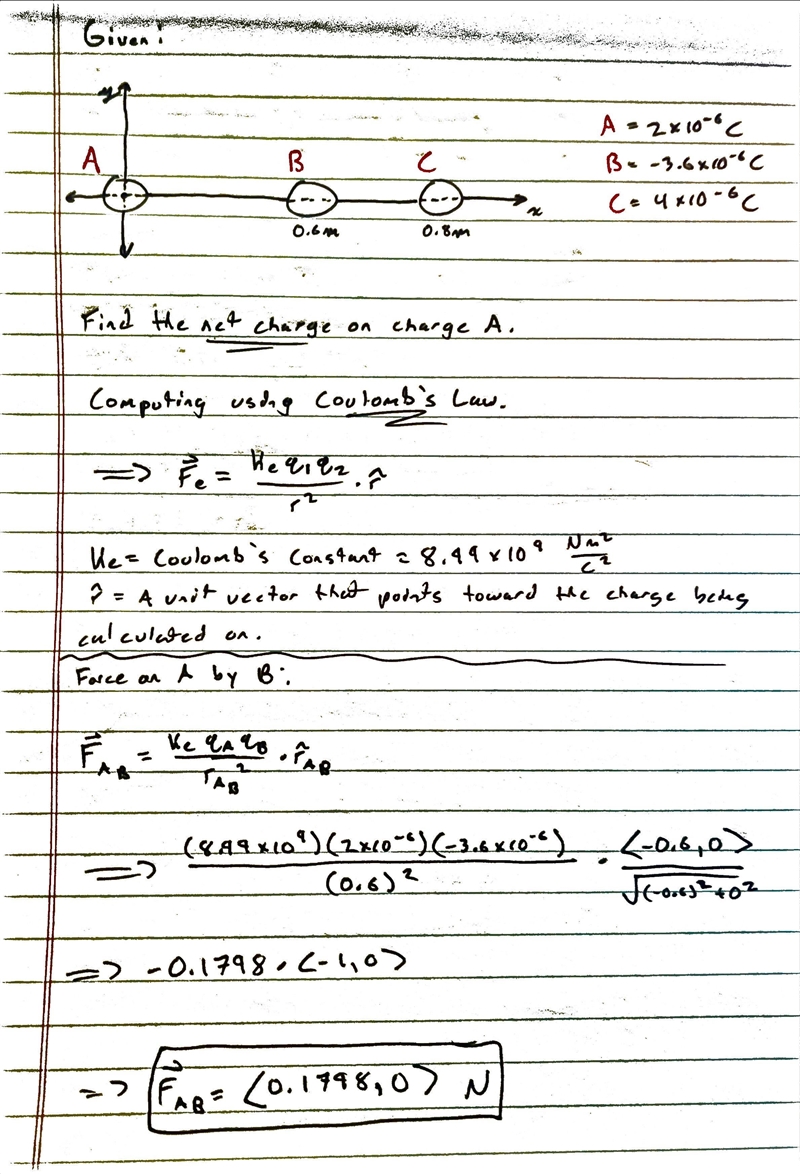 Given:
y
A B C
x
0.6m 0.8m
A = 2×10⁻⁶ C
B = -3.6×10⁻⁶ C
C = 4×10⁻⁶ C
Find the net charge on charge A.
Computing using Coulomb's Law.
=> F⃗e = Ke q₁ q₂ / r² · r̂
Ke = Coulomb's Constant = 8.99×10⁹ Nm²/C²
r̂ = A unit vector that points toward the charge being
calculated on.
Force on A by B:
F⃗AB = Ke qA qB / rAB² · r̂AB
=> (8.99×10⁹)(2×10⁻⁶)(-3.6×10⁻⁶) / (0.6)² · <-0.6, 0> / √(-0.6)² + 0²
=> -0.1798 · <-1, 0>
=> F⃗AB = <0.1798, 0> N